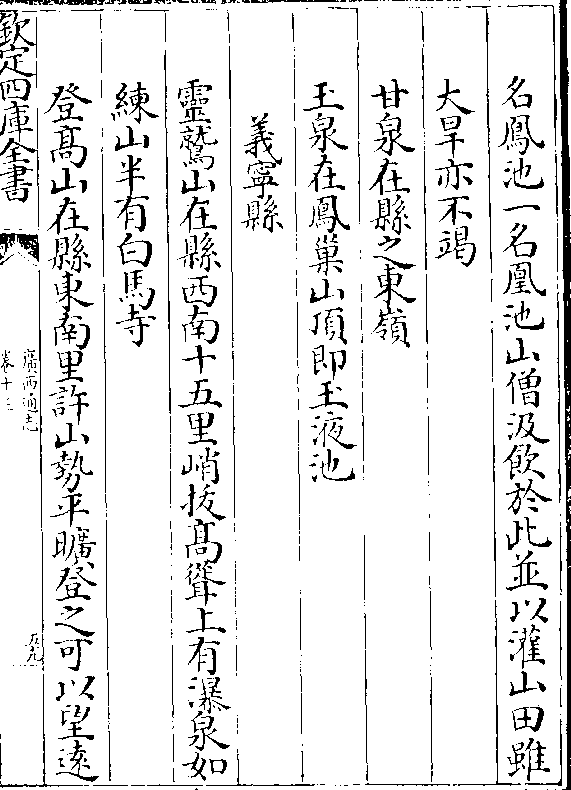 名鳳池一名凰池山僧汲飲於此並以灌山田雖
大旱亦不竭
甘泉在縣之東嶺
玉泉在鳳巢山頂即玉液池
義寧縣
靈鷲山在縣西南十五里峭拔髙聳上有瀑泉如
練山半有白馬寺
登髙山在縣東南里許山勢平曠登之可以望逺
欽定四庫全書
廣西通志
卷十三
五九